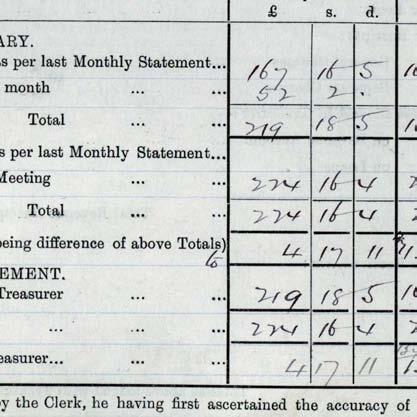 £ s. d.
ARY.
s per last Monthly Statement... 167 16 5
month ... ... 52 2 .
Total ... ... 219 18 5
s per last Monthly Statement...
Meeting ... ... 224 16 4
Total ... ... 224 16 4
being difference of above Totals) 4 17 11
EMENT.
Treasurer ... ... 219 18 5
... ... 224 16 4
easurer... ... ... 4 17 11
by the Clerk, he having first ascertained the accuracy of